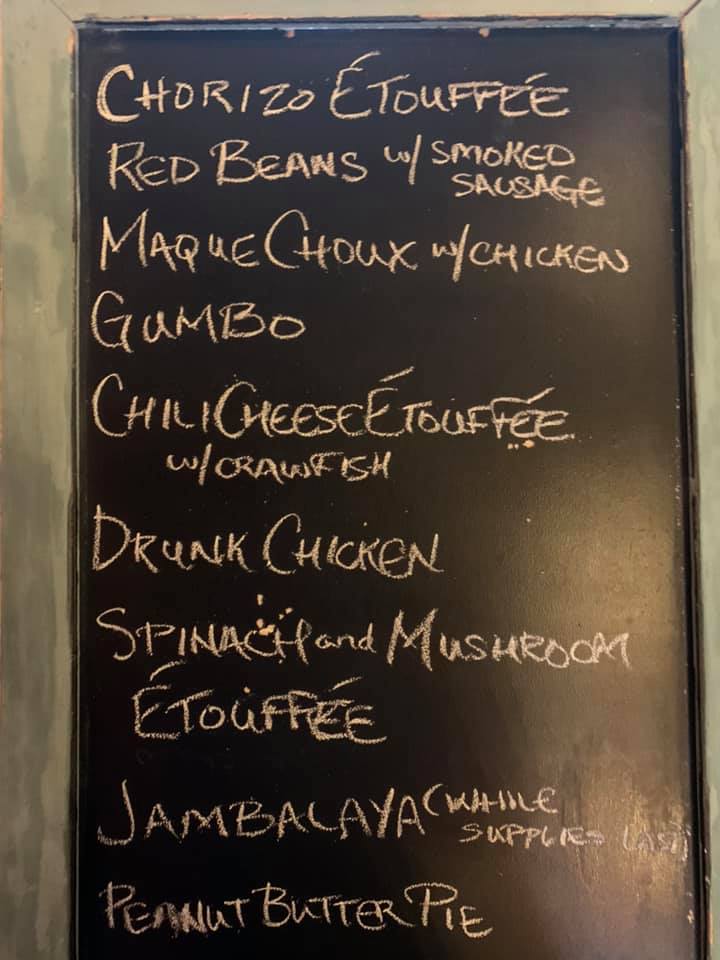 CHORIZO ÉTOUFFÉE
RED BEANS w/ SMOKED
SAUSAGE
MAQUE CHOUX w/CHICKEN
GUMBO
CHILI CHEESE ÉTOUFFÉE
w/CRAWFISH
DRUNK CHICKEN
SPINACH and MUSHROOM
ÉTOUFFÉE
JAMBALAYA (WHILE
SUPPLIES LAST)
PEANUT BUTTER PIE